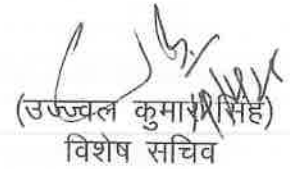 (उज्ज्वल कुमार सिंह)
विशेष सचिव